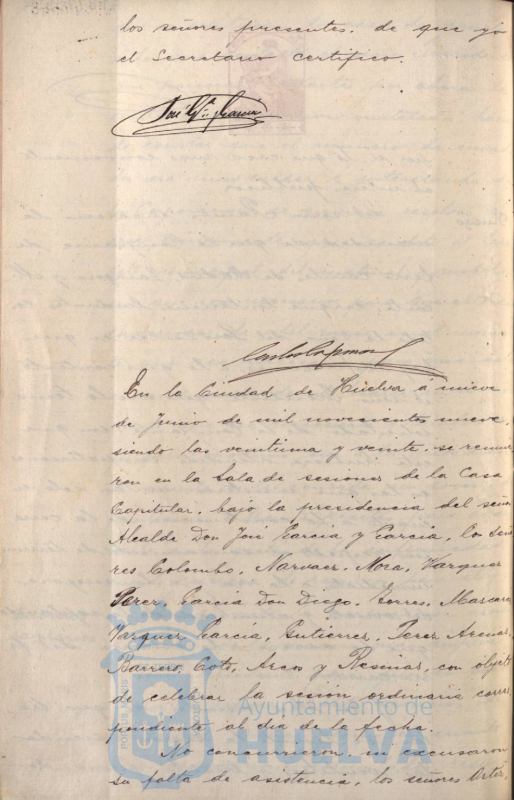 los señores presentes. de que yo
el Secretario certifico.
José Gª y García
En la Ciudad de Huelva á nueve
de Junio de mil novecientos nueve,
siendo las veintiuna y veinte, se reunie
ron en la Sala de sesiones de la Casa
Capitular, bajo la presidencia del señor
Alcalde Don José García y García, los Seño
res Colombo, Narvaez, Mora, Vazquez
Perez, García Don Diego, Torres, Mascaró,
Vazquez García, Gutierrez, Perez Arenas,
Barrero, Coto, Arcos y Rosinas, con objeto
de celebrar la sesión ordinaria corres
pondiente al día de la fecha.
No concurrieron ni excusaron
su falta de asistencia, los señores
Ayuntamiento de
HUELVA